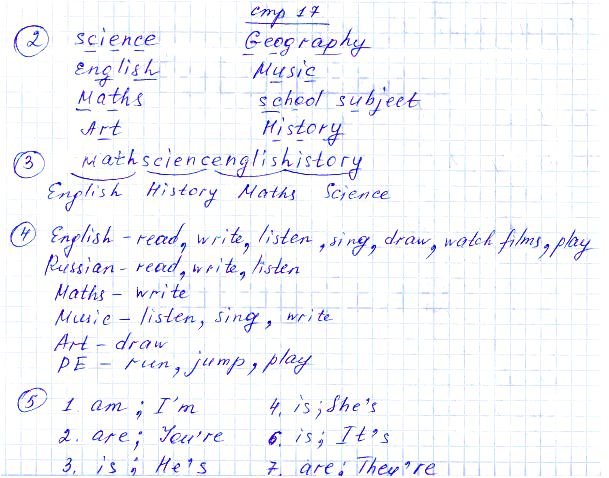 стр 17
2 science Geography
English Music
Maths school subject
Art History
3 Mathscienceenglishistory
English History Maths Science
4 English – read, write, listen, sing, draw, watch films, play
Russian – read, write, listen
Maths – write
Music – listen, sing, write
Art – draw
PE – run, jump, play
5 1. am; I'm 4. is; She's
2. are; You're 6. is; It's
3. is; He's 7. are; They're